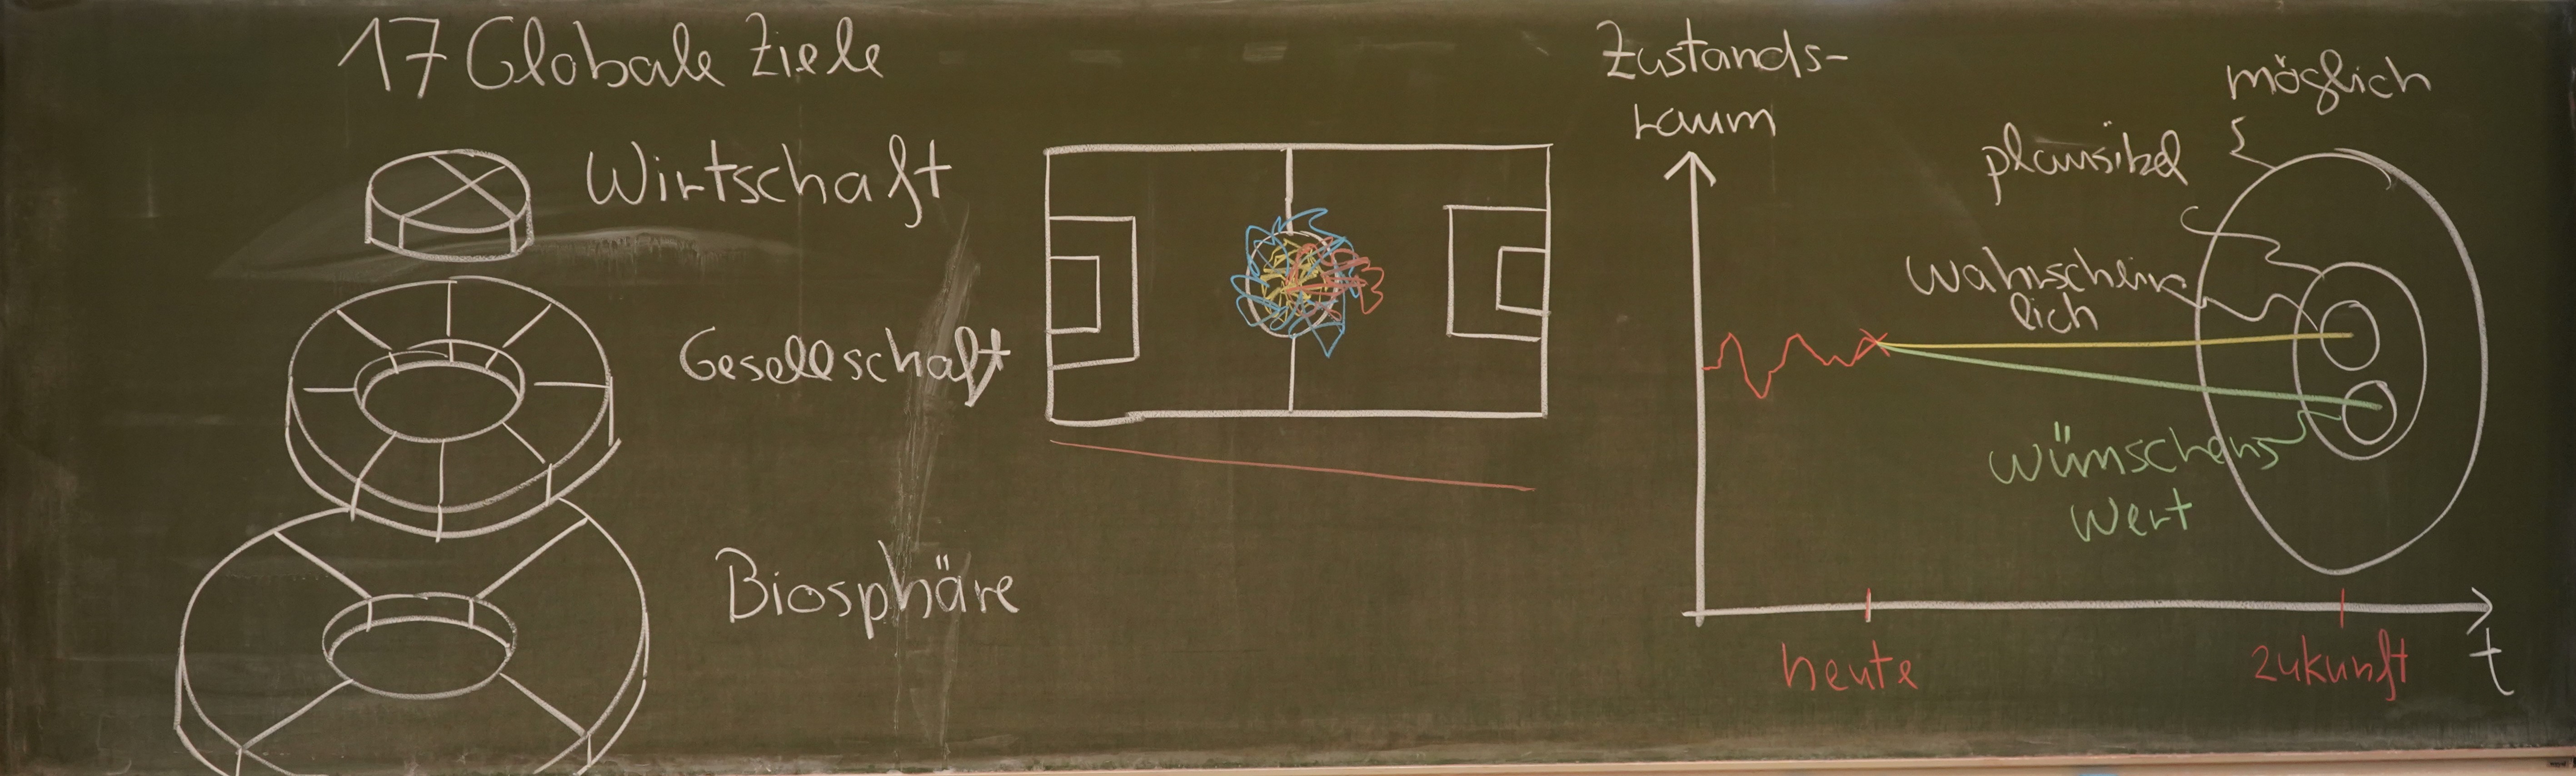 17 Globale Ziele
Wirtschaft
Gesellschaft
Biosphäre
Zustands-
raum
möglich
plausibel
wahrschein
lich
wünschens
wert
heute
zukunft
t